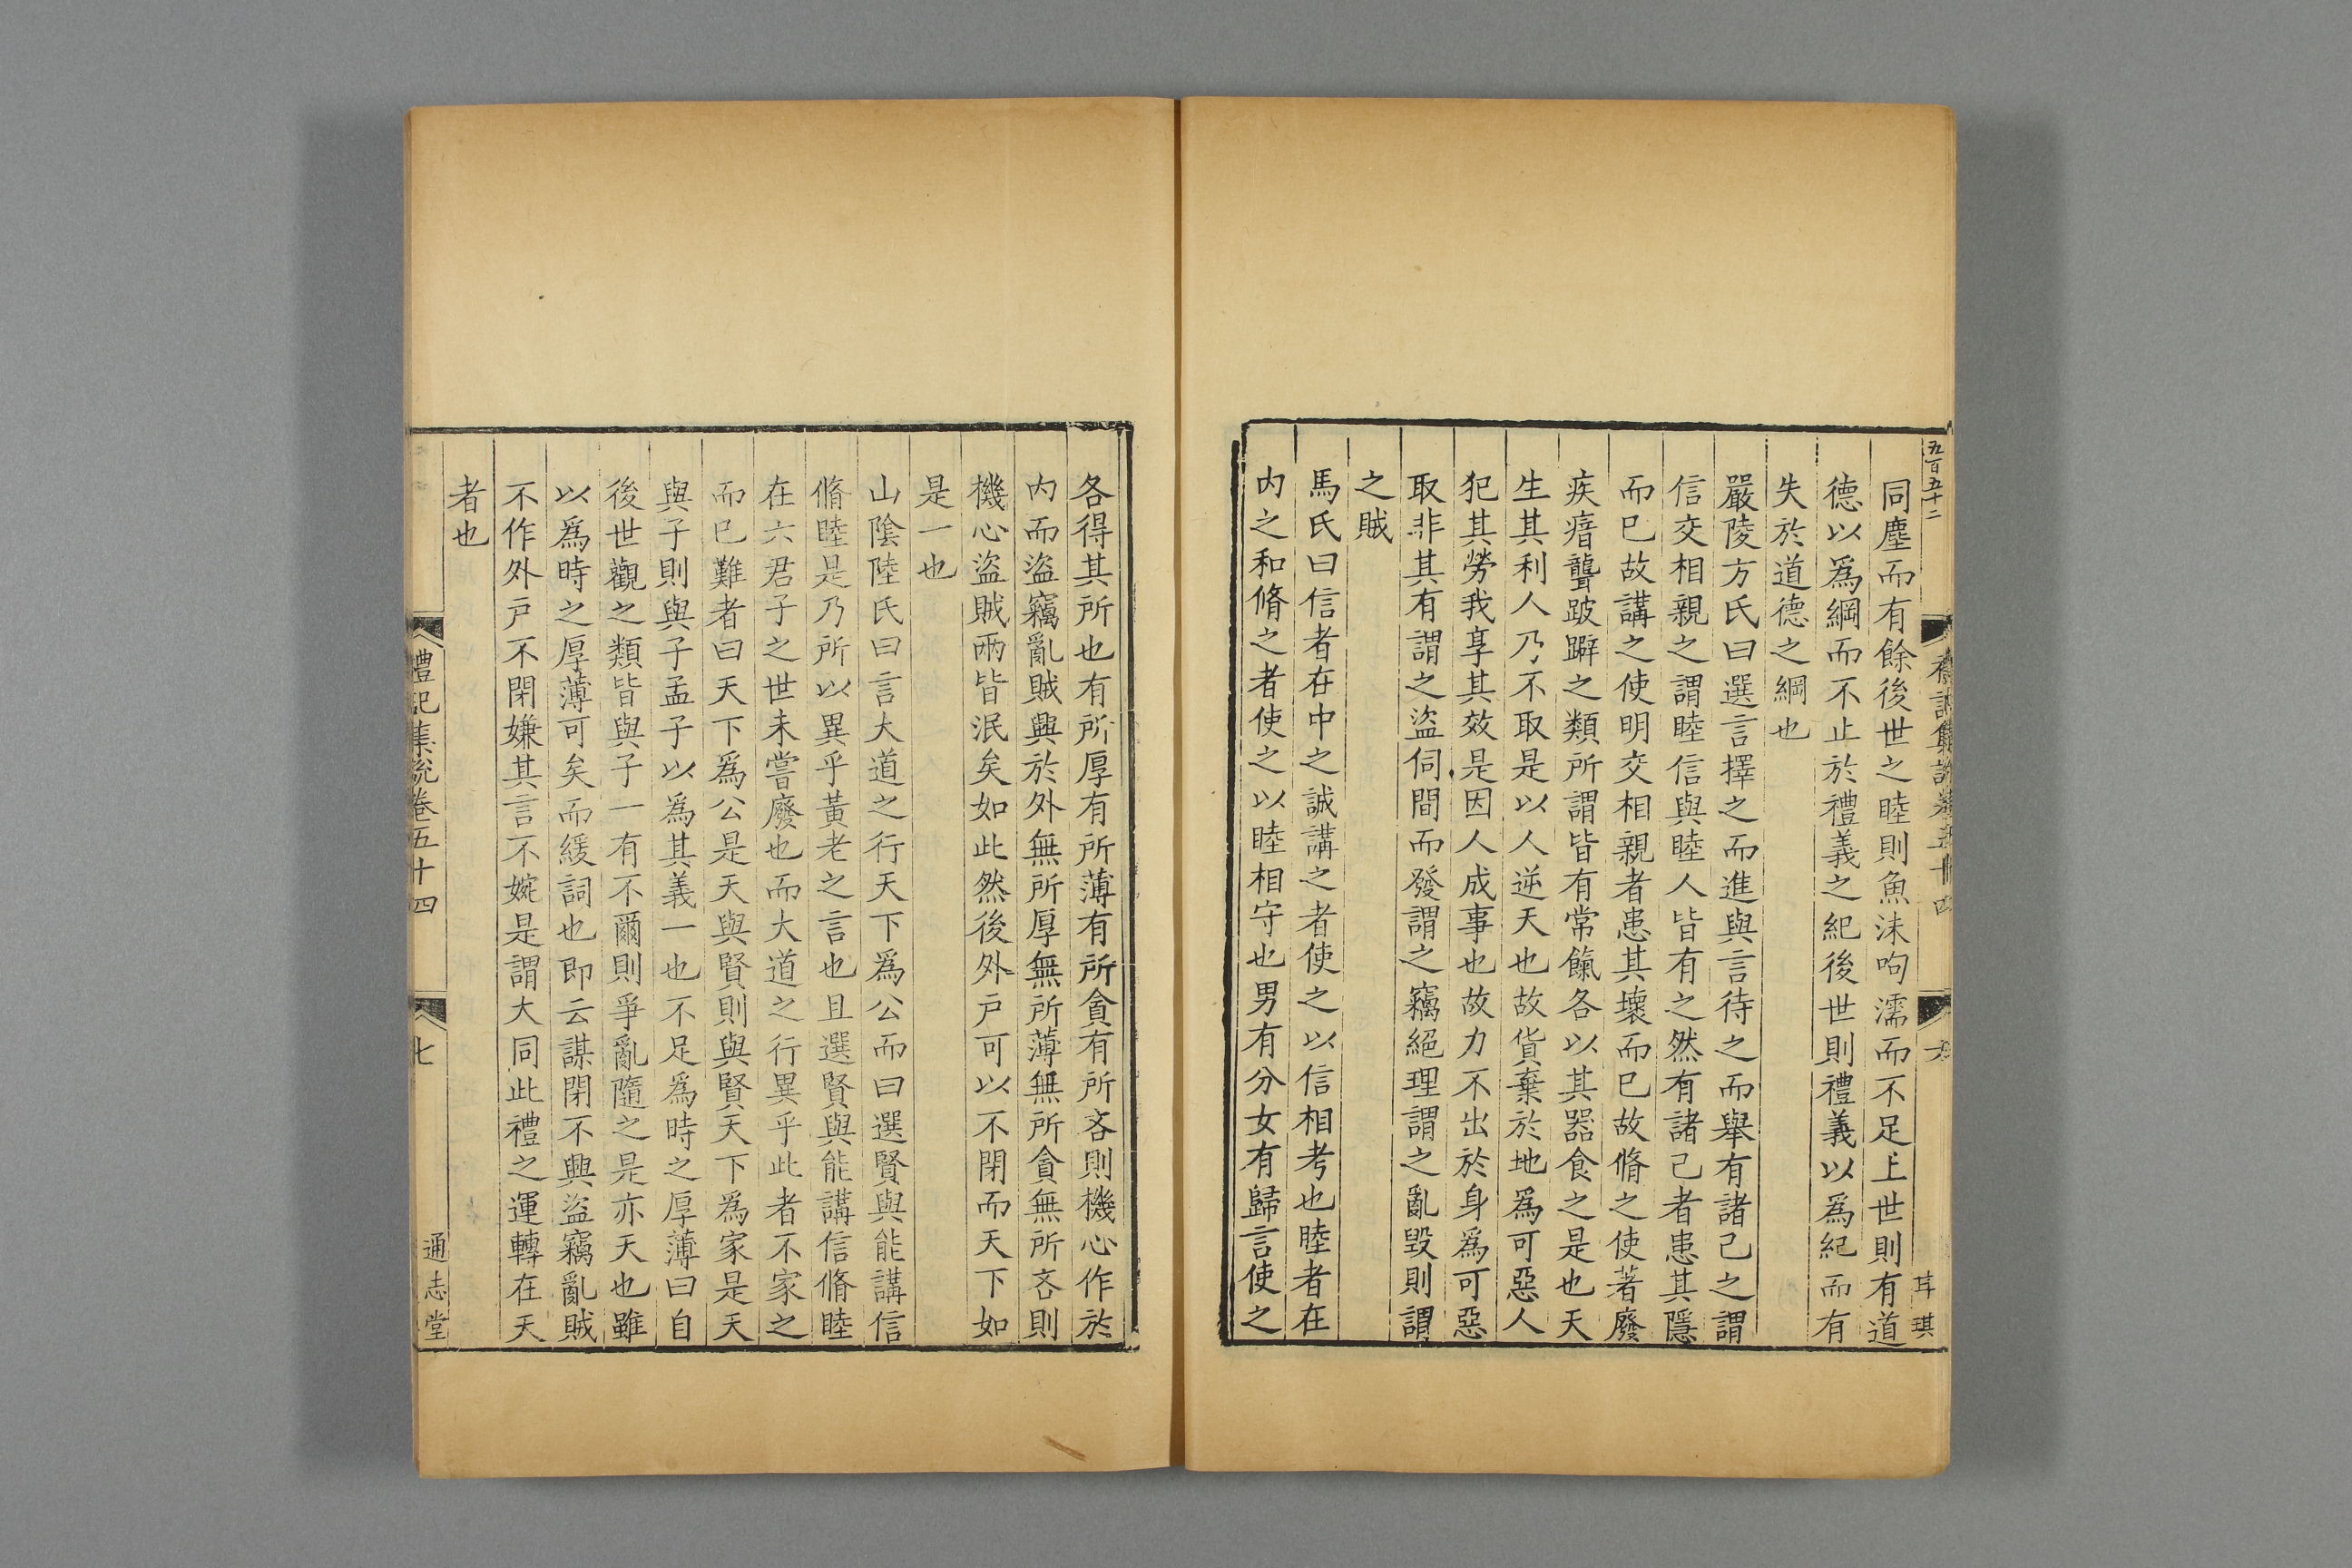 五百五十二
同塵而有餘後世之睦則魚沫呴濡而不足上世則有道
德以爲綱而不止於禮義之紀後世則禮義以爲紀而有
失於道德之綱也
嚴陵方氏曰選言擇之而進與言待之而舉有諸己之謂
信交相親之謂睦信與睦人皆有之然有諸己者患其隱
而已故講之使明交相親者患其壞而已故脩之使著廢
疾瘖聾跛躃之類所謂皆有常餼各以其器食之是也天
生其利人乃不取是以人逆天也故貨棄於地爲可惡人
犯其勞我享其效是因人成事也故力不出於身爲可惡
取非其有謂之盜伺間而發謂之竊絕理謂之亂毀則謂
之賊
馬氏曰信者在中之誠講之者使之以信相考也睦者在
内之和脩之者使之以睦相守也男有分女有歸言使之
各得其所也有所厚有所薄有所貪有所吝則機心作於
内而盜竊亂賊興於外無所厚無所薄無所貪無所吝則
機心盜賊兩皆泯矣如此然後外戶可以不閉而天下如
是一也
山陰陸氏曰言大道之行天下爲公而曰選賢與能講信
脩睦是乃所以異乎黃老之言也且選賢與能講信脩睦
在六君子之世未嘗廢也而大道之行異乎此者不家之
而已難者曰天下爲公是天與賢則與賢天下爲家是天
與子則與子孟子以爲其義一也不足爲時之厚薄曰自
後世觀之類皆與子一有不爾則爭亂隨之是亦天也雖
以爲時之厚薄可矣而緩詞也即云謀閉不興盜竊亂賊
不作外戶不閉嫌其言不婉是謂大同此禮之運轉在天
者也
禮記集說卷五十四
七
通志堂